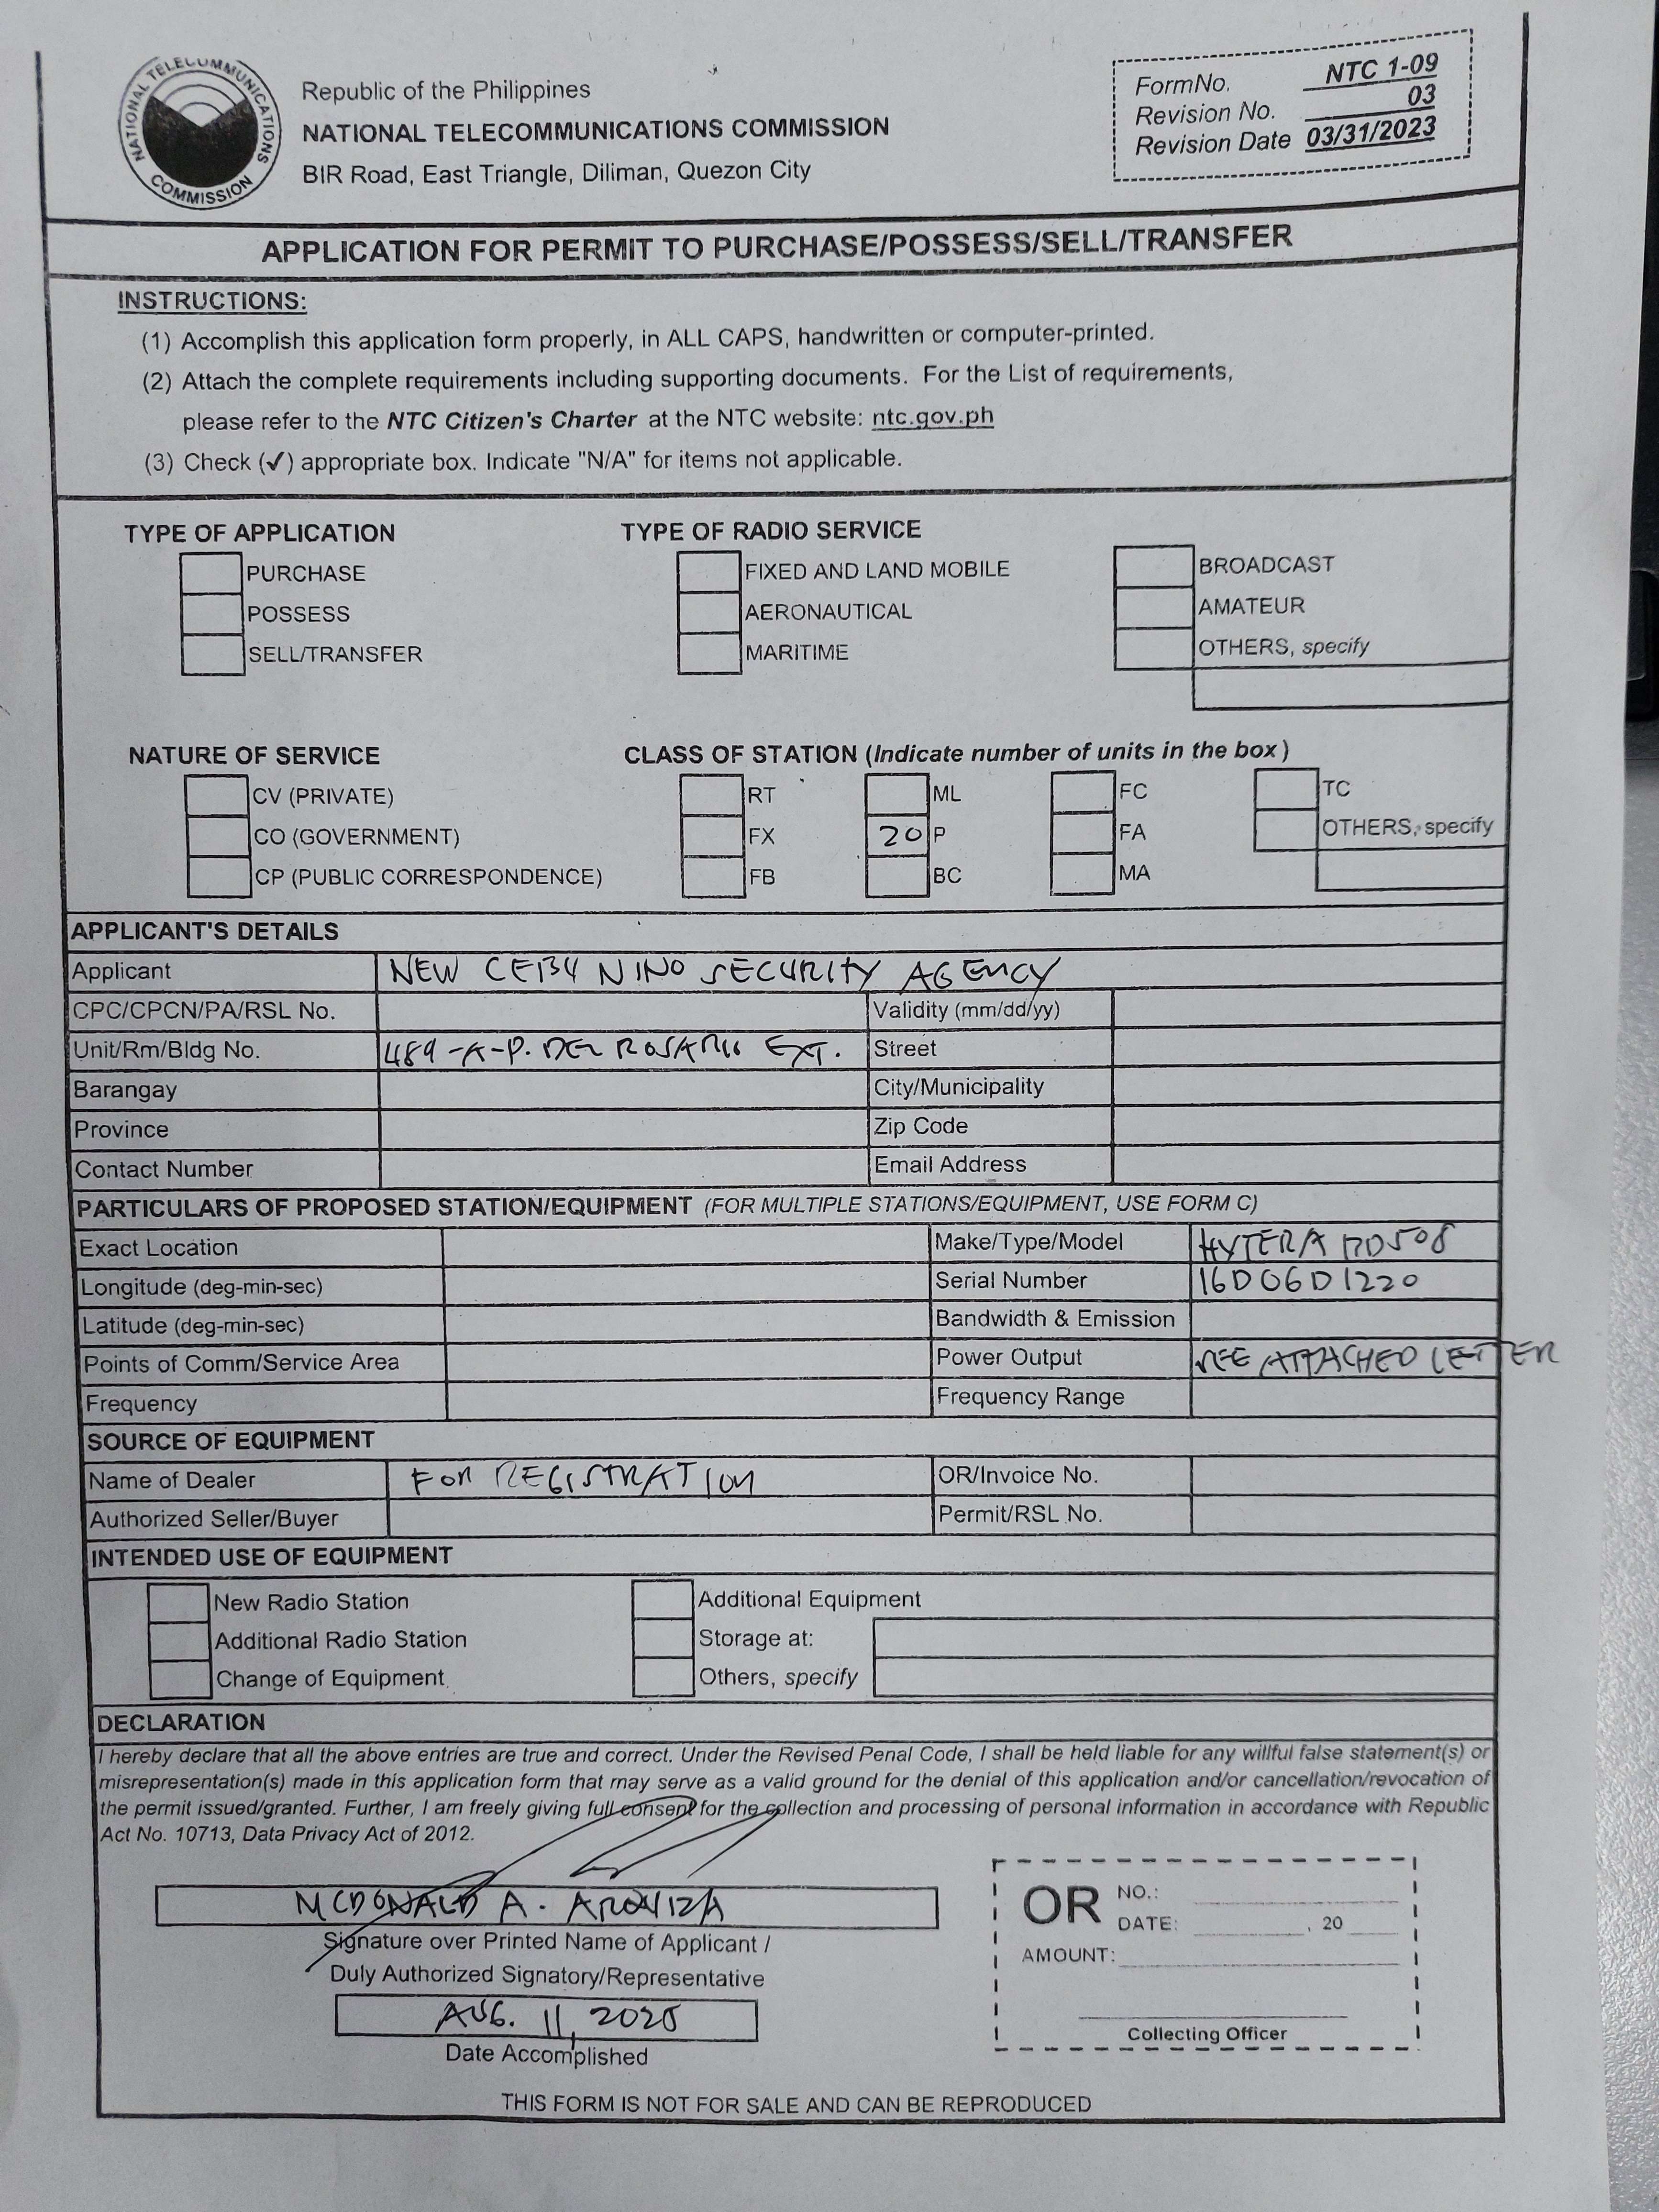 NATIONAL TELECOMMUNICATIONS COMMISSION
Republic of the Philippines
NATIONAL TELECOMMUNICATIONS COMMISSION
BIR Road, East Triangle, Diliman, Quezon City
FormNo. NTC 1-09
Revision No. 03
Revision Date 03/31/2023
APPLICATION FOR PERMIT TO PURCHASE/POSSESS/SELL/TRANSFER
INSTRUCTIONS:
(1) Accomplish this application form properly, in ALL CAPS, handwritten or computer-printed.
(2) Attach the complete requirements including supporting documents. For the List of requirements,
please refer to the NTC Citizen's Charter at the NTC website: ntc.gov.ph
(3) Check (✓) appropriate box. Indicate "N/A" for items not applicable.
TYPE OF APPLICATION
PURCHASE
POSSESS
SELL/TRANSFER
TYPE OF RADIO SERVICE
FIXED AND LAND MOBILE
AERONAUTICAL
MARITIME
BROADCAST
AMATEUR
OTHERS, specify
NATURE OF SERVICE
CV (PRIVATE)
CO (GOVERNMENT)
CP (PUBLIC CORRESPONDENCE)
CLASS OF STATION (Indicate number of units in the box)
RT ML FC TC
FX 20 P FA OTHERS, specify
FB BC MA
APPLICANT'S DETAILS
Applicant NEW CEBU NINO SECURITY AGENCY
CPC/CPCN/PA/RSL No. Validity (mm/dd/yy)
Unit/Rm/Bldg No. 489-A-P. DEL ROSARIO EXT. Street
Barangay City/Municipality
Province Zip Code
Contact Number Email Address
PARTICULARS OF PROPOSED STATION/EQUIPMENT (FOR MULTIPLE STATIONS/EQUIPMENT, USE FORM C)
Exact Location Make/Type/Model HYTERA PD508
Longitude (deg-min-sec) Serial Number 16D06D1220
Latitude (deg-min-sec) Bandwidth & Emission
Points of Comm/Service Area Power Output SEE ATTACHED LETTER
Frequency Frequency Range
SOURCE OF EQUIPMENT
Name of Dealer FOR REGISTRATION OR/Invoice No.
Authorized Seller/Buyer Permit/RSL No.
INTENDED USE OF EQUIPMENT
New Radio Station Additional Equipment
Additional Radio Station Storage at:
Change of Equipment Others, specify
DECLARATION
I hereby declare that all the above entries are true and correct. Under the Revised Penal Code, I shall be held liable for any willful false statement(s) or
misrepresentation(s) made in this application form that may serve as a valid ground for the denial of this application and/or cancellation/revocation of
the permit issued/granted. Further, I am freely giving full consent for the collection and processing of personal information in accordance with Republic
Act No. 10713, Data Privacy Act of 2012.
MCDONALD A.
Signature over Printed Name of Applicant /
Duly Authorized Signatory/Representative
AUG. 11, 2025
Date Accomplished
OR NO.:
DATE: , 20
AMOUNT:
Collecting Officer
THIS FORM IS NOT FOR SALE AND CAN BE REPRODUCED